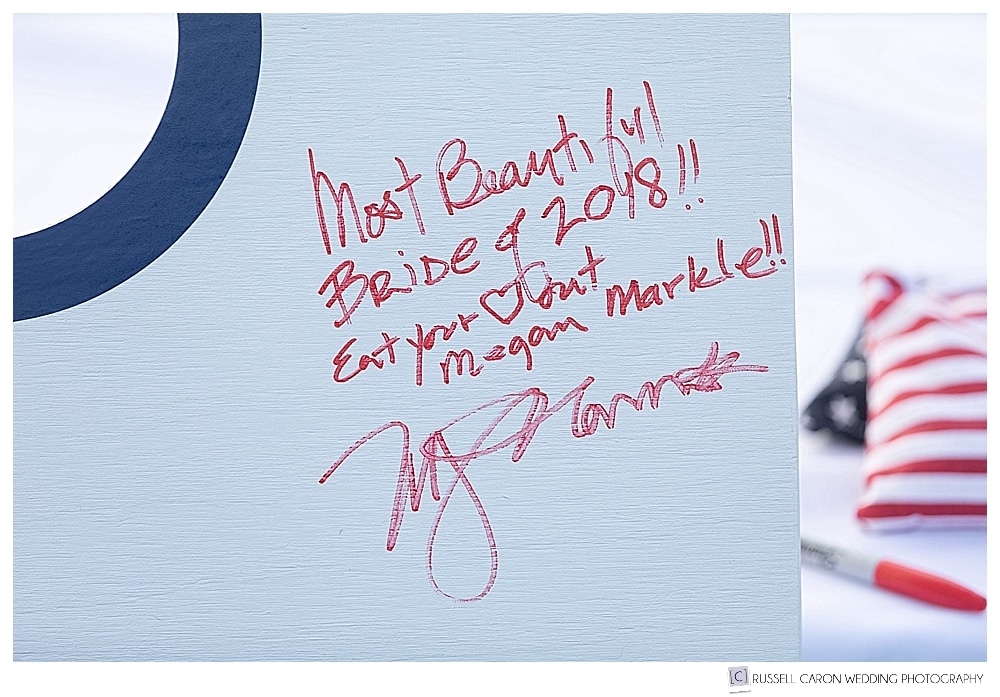 Most Beautiful
BRiDE of 2018!!
Eat your ♡ out
Megan Markle!!
[C] RUSSELL CARON WEDDING PHOTOGRAPHY